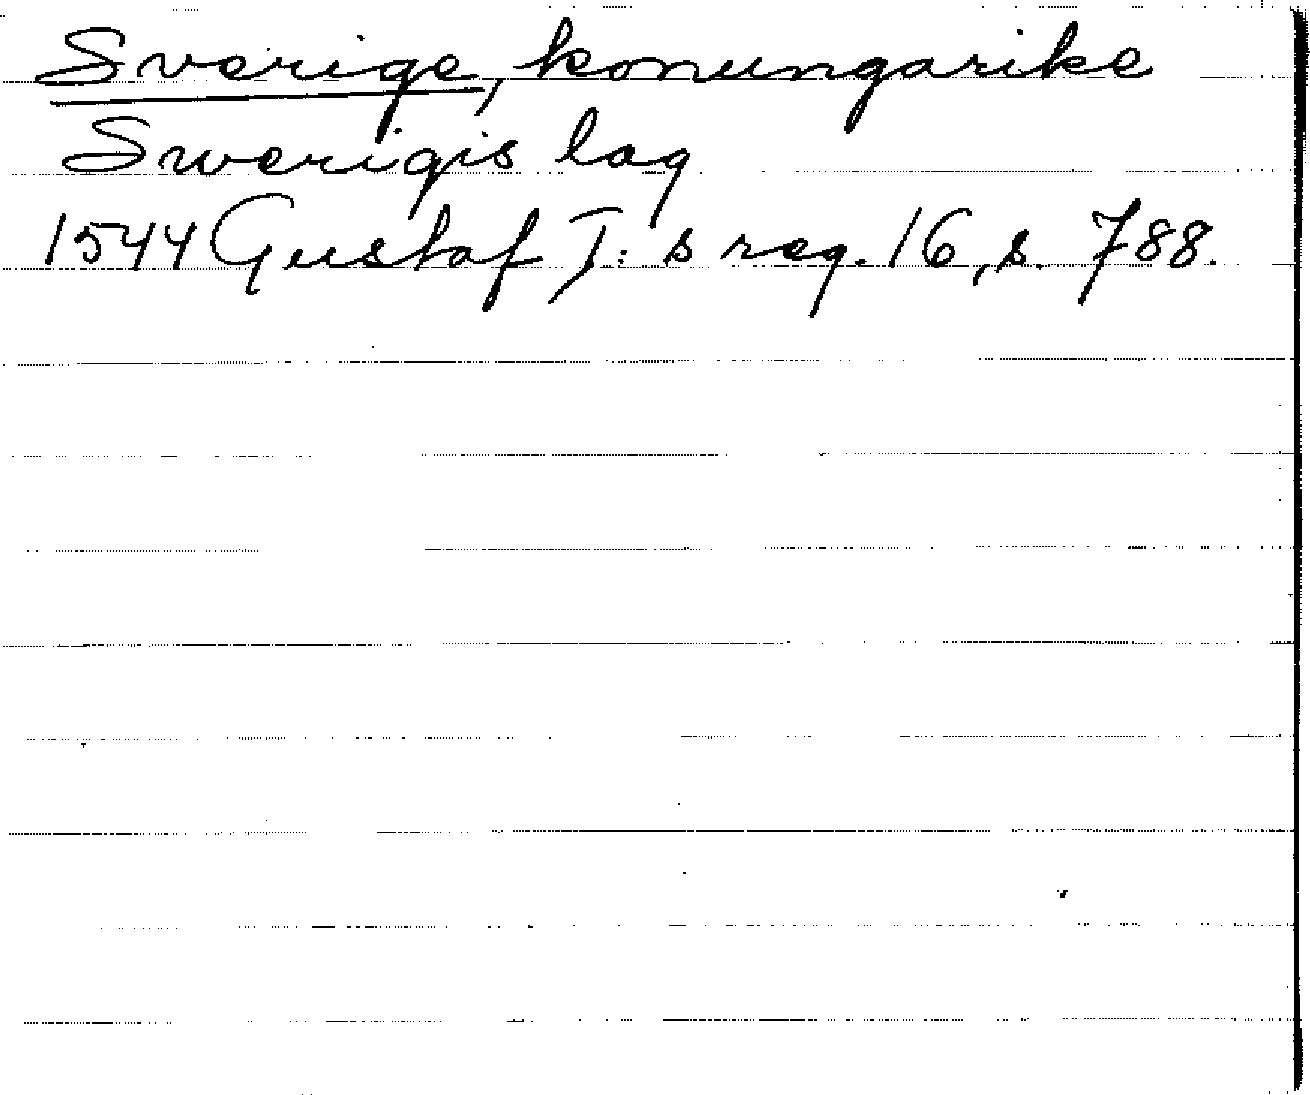 Sverige, konungarike
Swerigis lag
1544 Gustaf I:s reg. 16, s. 788.